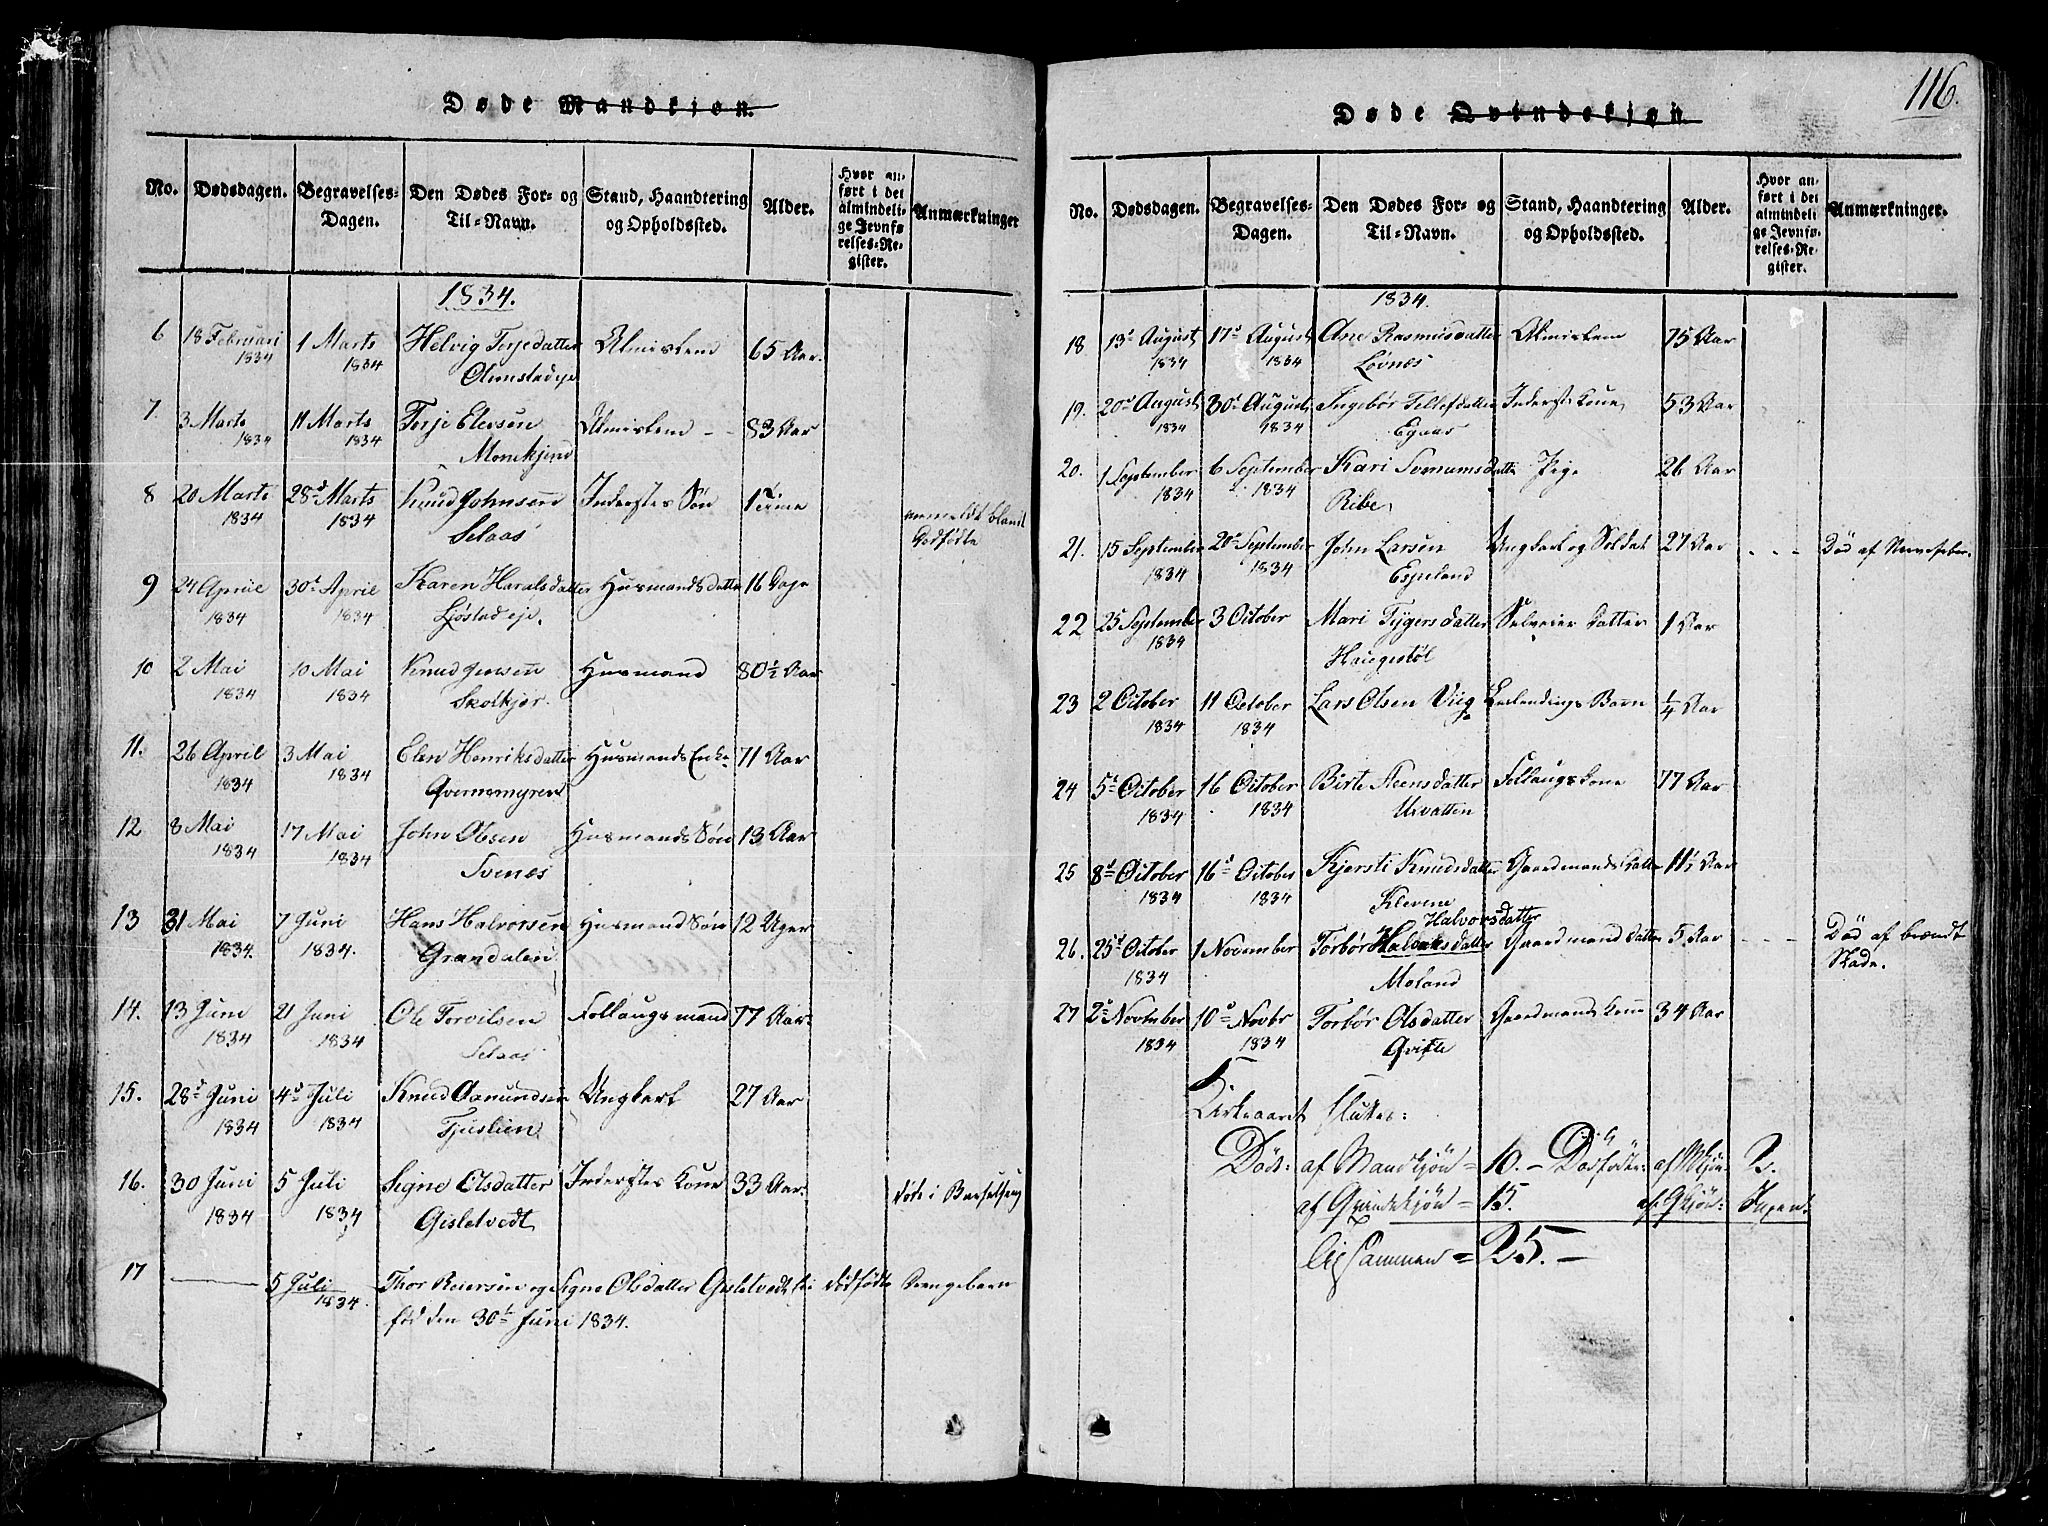 Døde Mandkjøn.
No. Dødsdagen. Begravelses-Dagen. Den Dødes For- og Til-Navn. Stand, Haandtering og Opholdssted. Alder. Hvor anført i det almindelige Jevnførelses-Register. Anmærkninger
1834.
6 18 Februari 1 Marts Helvig Terjedatter Almislem 65 Aar.
1834 1834 Omstadeje
7. 3 Marts 11 Marts Terje Elevsen Almislem 83 Aar
1834 1834
8 20 Marts 28d Marts Knud Johnsen Inderstes Søn 1 Time anmeldt blandt
1834 1834 Selaas Dødfødte
9 24 April 30d April Karen Haralsdatter Husmandsdatter 16 Dage
1834 1834 Ljøstadeje.
10 2 Mai 10 Mai Knud Jensen Husmand 80½ Aar
1834 1834
11. 26 April 3 Mai Elen Henriksdatter Husmands Enke 71 Aar
1834 1834 Qvernsmyren
12 8 Mai 17 Mai John Olsen Husmands Søn 13 Aar
1834 1834 Svenes
13 31 Mai 7 Juni Hans Halvorsen Husmand Søn 12 Uger
1834. 1834. Grandalen
14. 13 Juni 21 Juni Ole Tervilsen Follaugsmand 77 Aar
1834 1834 Selaas
15. 28d Juni 4d Juli Knud Aamundsen Ungkarl 27 Aar
1834 1834
16. 30 Juni 5 Juli Signe Olsdatter Inderstes Kone 33 Aar døde i Barselseng
1834 1834 Gisletvedt
17 5 Juli Thor Reiersen og Signe Olsdatter Gisletvedt dødfødte Drengebarn
1834. fød den 30d Juni 1834.
116.
Døde Qvindekjøn
No. Dødsdagen. Begravelses-Dagen. Den Dødes For- og Til-Navn. Stand, Haandtering og Opholdssted. Alder. Hvor anført i det almindelige Jevnførelses-Register. Anmærkninger.
1834.
18 13d August 17d August Ane Rasmusdatter Almislem 75 Aar
1834 1834 Løvnes
19. 20d August 30d August Ingebør Tellefdatter Inderst Kone 53 Aar
1834 1834 Egaas
20. 1 September 6 September Kari Pige 26 Aar
1834 1834 Ribe
21. 15 September 20d September John Larsen Ungkarl og Soldat 27 Aar - - - Død af Nervefeber
1834 1834 Espeland
22 25 September 3 October Mari Tygersdatter Selveier datter 1 Aar
1834 Haugestøl
23 2 October 11 October Lars Olsen Viig Barn ¼ Aar
1834 1834
24 5d October 16 October Birte Steensdatter Follaugskone 77 Aar
1834 1834 Urvatten
25 8d October 16d October Kjersti Knudsdatter Gaardmands datter 11½ Aar
1834 1834 Klevene
Halvorsdatter
26. 25d October 1 November Torbør Halvorsdatter Gaardmand datter 5 Aar - - - Død af brændt
1834 Moland Skade.
27 2d November 10d Novbr Torbør Olsdatter Gaardmands Kone 34 Aar
1834 1834 Qvisle
Kirkeaaret sluttes:
Døde: af Mandkjøn = 10. - Dødfødte: af Mkjøn: 2.
af Qvindekjøn = 15. af Qkjøn: Ingen:
Tilsammen = 25. -